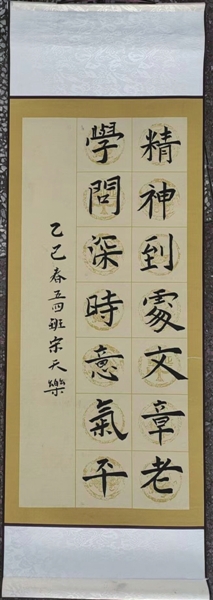 精神到處文章老
學問深時意氣平
乙巳春五四班宗天樂